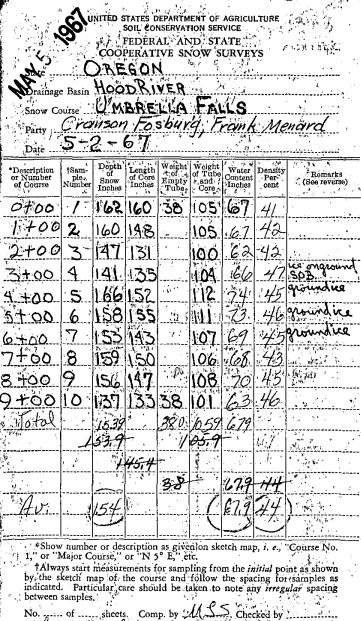 MAY 5 1967
UNITED STATES DEPARTMENT OF AGRICULTURE
SOIL CONSERVATION SERVICE
FEDERAL AND STATE
COOPERATIVE SNOW SURVEYS
State OREGON
Drainage Basin HOOD RIVER
Snow Course UMBRELLA FALLS
Party Crawson Fosburg, Frank Menard
Date 5-2-67
*Description or Number of Course †Sample Number Depth of Snow Inches Length of Core Inches Weight of Empty Tube Weight of Tube and Core Water Content Inches Density Percent Remarks (See reverse)
0+00 1 162 160 38 105 67 41
1+00 2 160 148 105 67 42
2+00 3 147 131 100 62 42
3+00 4 141 135 104 66 47 ice on ground
4+00 5 166 152 112 74 45 ground ice
5+00 6 158 155 111 73 46 ground ice
6+00 7 153 143 107 69 45 ground ice
7+00 8 159 150 106 68 43
8+00 9 156 147 108 70 45
9+00 10 137 133 38 101 63 46
Total 1539 380 1059 679
153.9 105.9
145.4
38 67.9 44
Av. 154 67.9 44
*Show number or description as given on sketch map, i. e., "Course No.
1," or "Major Course," or "N 5° E," etc.
†Always start measurements for sampling from the initial point as shown
by the sketch map of the course and follow the spacing for samples as
indicated. Particular care should be taken to note any irregular spacing
between samples.
No. of sheets. Comp. by MLS Checked by